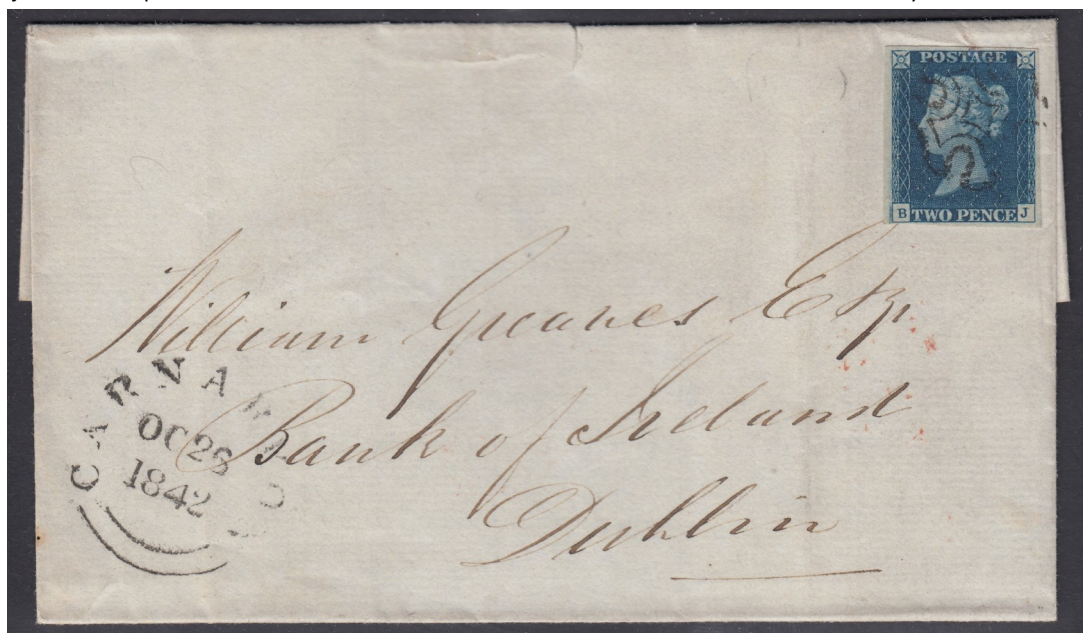 POSTAGE
B TWO PENCE J
William Greaves Esqr.
Bank of Ireland
Dublin
CARNARVON
OC 26
1842